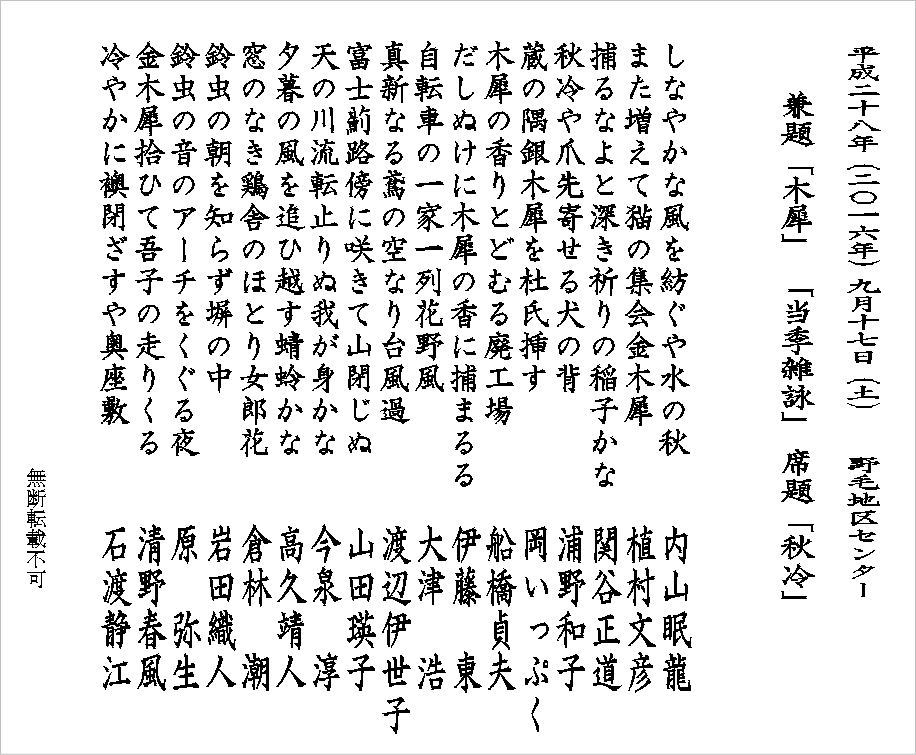 平成二十八年(二〇一六年)九月十七日(土) 野毛地区センター
兼題「木犀」 「当季雑詠」 席題「秋冷」
しなやかな風を紡ぐや水の秋 内山眠龍
また増えて猫の集会金木犀 植村文彦
捕るなよと深き祈りの稲子かな 関谷正道
秋冷や爪先寄せる犬の背 浦野和子
蔵の隅銀木犀を杜氏挿す 岡いっぷく
木犀の香りとどむる廃工場 船橋貞夫
だしぬけに木犀の香に捕まるる 伊藤 東
自転車の一家一列花野風 大津 浩
真新なる鳶の空なり台風過 渡辺伊世子
富士薊路傍に咲きて山閉じぬ 山田瑛子
天の川流転止りぬ我が身かな 今泉 淳
夕暮の風を追ひ越す蜻蛉かな 高久靖人
窓のなき鶏舎のほとり女郎花 倉林 潮
鈴虫の朝を知らず塀の中 岩田織人
鈴虫の音のアーチをくぐる夜 原 弥生
金木犀拾ひて吾子の走りくる 清野春風
冷やかに襖閉ざすや奥座敷 石渡静江
無断転載不可